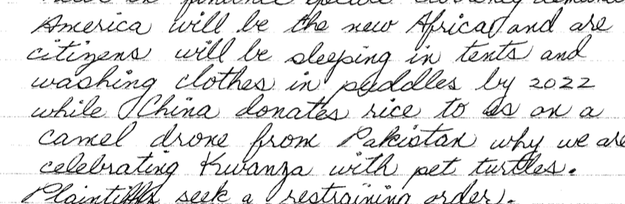 America will be the new Africa and are
citizens will be sleeping in tents and
washing clothes in puddles by 2022
while China donates rice to us on a
camel drone from Pakistan why we are
celebrating Kwanza with pet turtles.
Plaintiffs seek a restraining order.